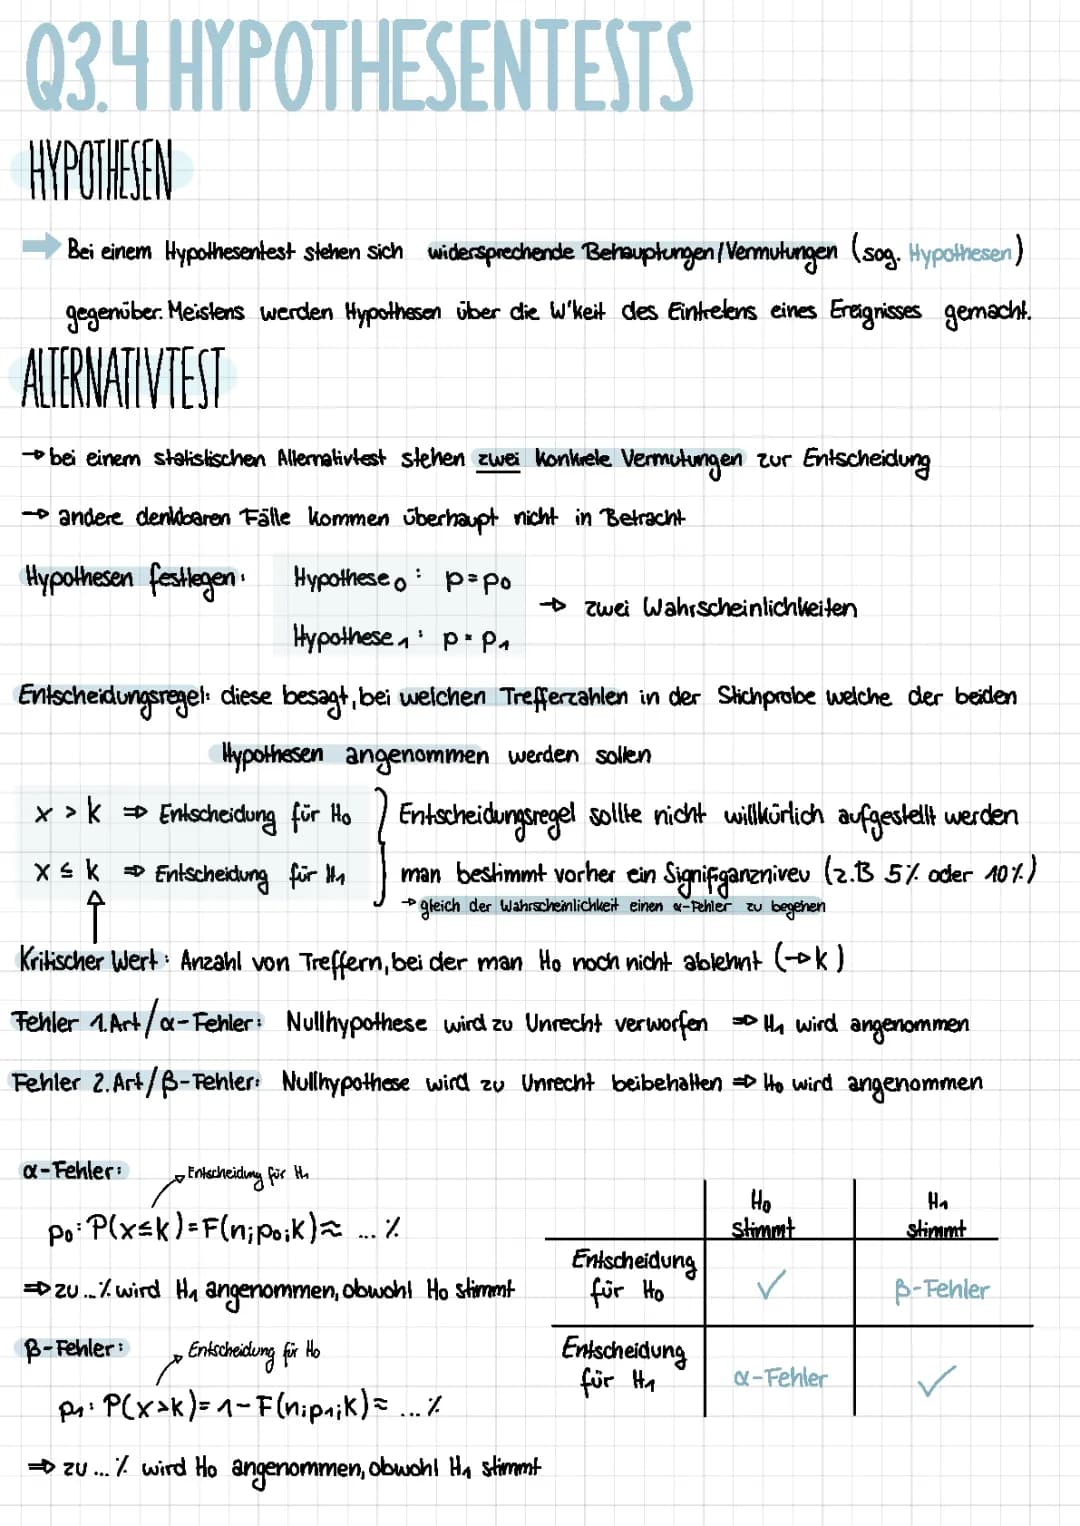 Q3.4 HYPOTHESENTESTS
HYPOTHESEN
➡ Bei einem Hypothesentest stehen sich widersprechende Behauptungen/Vermutungen (sog. Hypothesen)
gegenüber. Meistens werden Hypothesen über die W'keit des Eintretens eines Ereignisses gemacht.
ALTERNATIVTEST
→ bei einem statistischen Alternativtest stehen zwei konkrete Vermutungen zur Entscheidung
→ andere denkbaren Fälle kommen überhaupt nicht in Betracht
Hypothesen festlegen: Hypothese₀: p=p₀
→ zwei Wahrscheinlichkeiten
Hypothese₁: p=p₁
Entscheidungsregel: diese besagt, bei welchen Trefferzahlen in der Stichprobe welche der beiden
Hypothesen angenommen werden sollen
x > k ⇒ Entscheidung für H₀ } Entscheidungsregel sollte nicht willkürlich aufgestellt werden
x ≤ k ⇒ Entscheidung für H₁ man bestimmt vorher ein Signifiganzniveu (z.B 5% oder 10%)
→ gleich der Wahrscheinlichkeit einen α-Fehler zu begehen
Kritischer Wert: Anzahl von Treffern, bei der man H₀ noch nicht ablehnt (→k)
Fehler 1.Art/α-Fehler: Nullhypothese wird zu Unrecht verworfen ⇒ H₁ wird angenommen
Fehler 2.Art/β-Fehler: Nullhypothese wird zu Unrecht beibehalten ⇒ H₀ wird angenommen
α-Fehler:
Entscheidung für H₁
p₀: P(x≤k)=F(n;p₀;k)≈ ... %
⇒ zu ...% wird H₁ angenommen, obwohl H₀ stimmt
β-Fehler:
Entscheidung für H₀
p₁: P(x>k)=1-F(n;p₁;k)≈ ...%
⇒ zu ... % wird H₀ angenommen, obwohl H₁ stimmt
H₀ stimmt
H₁ stimmt
Entscheidung für H₀ ✓ β-Fehler
Entscheidung für H₁ α-Fehler ✓